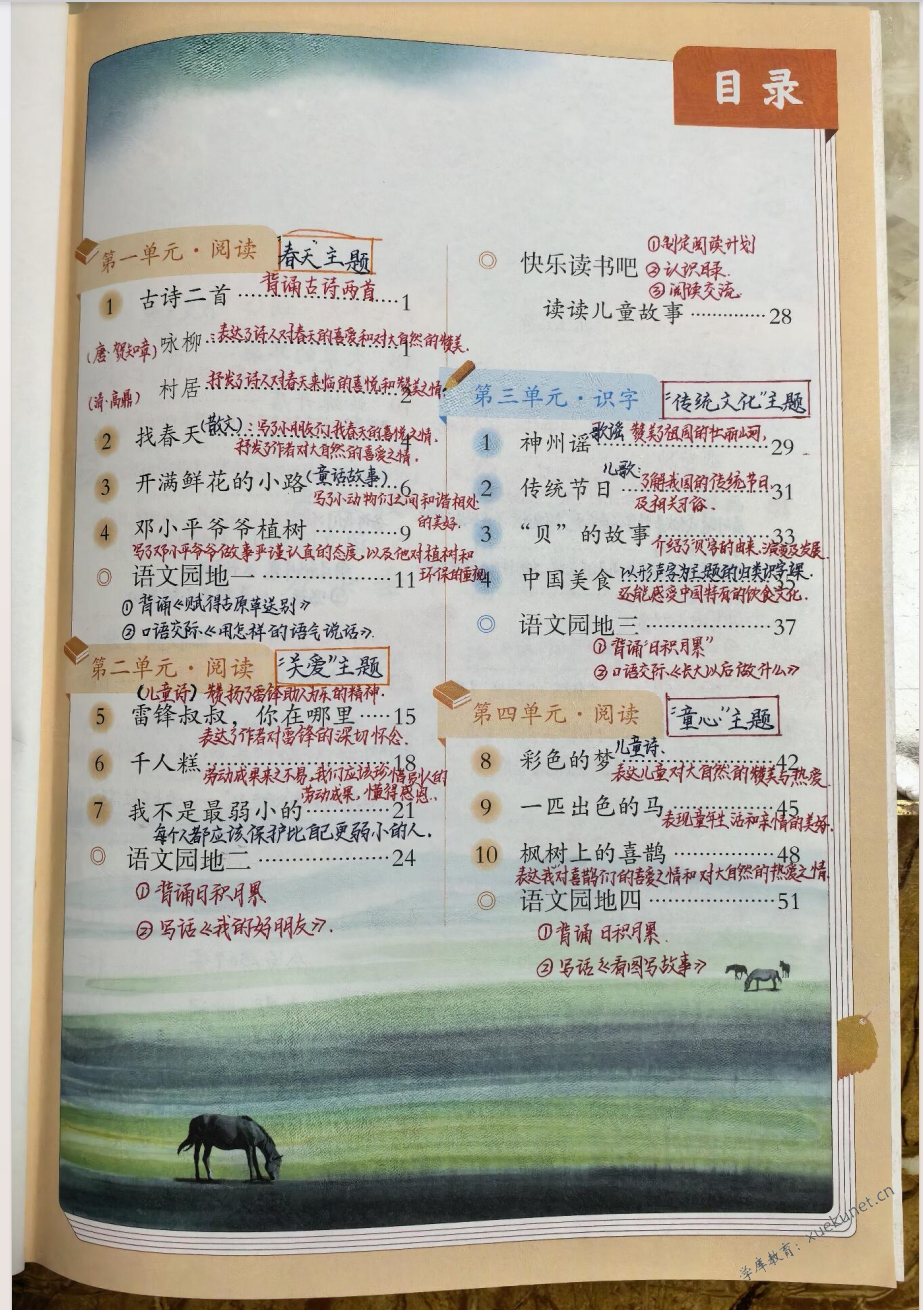 目录
第一单元·阅读 “春天”主题
1 古诗二首 背诵古诗两首 1
(唐·贺知章) 咏柳:表达了诗人对春天的喜爱和对大自然的赞美. 1
(清·高鼎) 村居:抒发了诗人对春天来临的喜悦和赞美之情. 2
2 找春天(散文):写了小朋友们找春天的喜悦之情. 4
抒发了作者对大自然的喜爱之情.
3 开满鲜花的小路(童话故事) 6
写了小动物们之间和谐相处
的美好.
4 邓小平爷爷植树 9
写了邓小平爷爷做事严谨认真的态度,以及他对植树和
环保的重视
语文园地一 11
①背诵《赋得古原草送别》
②口语交际《用怎样的语气说话》.
第二单元·阅读 “关爱”主题
(儿童诗) 赞扬了雷锋助人为乐的精神.
5 雷锋叔叔,你在哪里 15
表达了作者对雷锋的深切怀念.
6 千人糕 18
劳动成果来之不易,我们应该珍惜别人的
劳动成果,懂得感恩.
7 我不是最弱小的 21
每个人都应该保护比自己更弱小的人.
语文园地二 24
①背诵日积月累
②写话《我的好朋友》.
快乐读书吧
①制定阅读计划
②认识目录.
③阅读交流.
读读儿童故事 28
第三单元·识字 “传统文化”主题
1 神州谣 歌谣 赞美了祖国的壮丽山河, 29
儿歌:
2 传统节日 了解我国的传统节日 31
及相关习俗.
3 “贝”的故事 33
介绍了“贝”字的由来、演变及发展.
4 中国美食 以形声字为主题的归类识字课.
还能感受中国特有的饮食文化.
语文园地三 37
①背诵“日积月累”
②口语交际《长大以后做什么》
第四单元·阅读 “童心”主题
8 彩色的梦 儿童诗. 42
表达儿童对大自然的赞美与热爱.
9 一匹出色的马 45
表现童年生活和亲情的美好.
10 枫树上的喜鹊 48
表达“我”对喜鹊们的喜爱之情和对大自然的热爱之情.
语文园地四 51
①背诵 日积月累.
②写话《看图写故事》
学库教育:xuekunet.cn